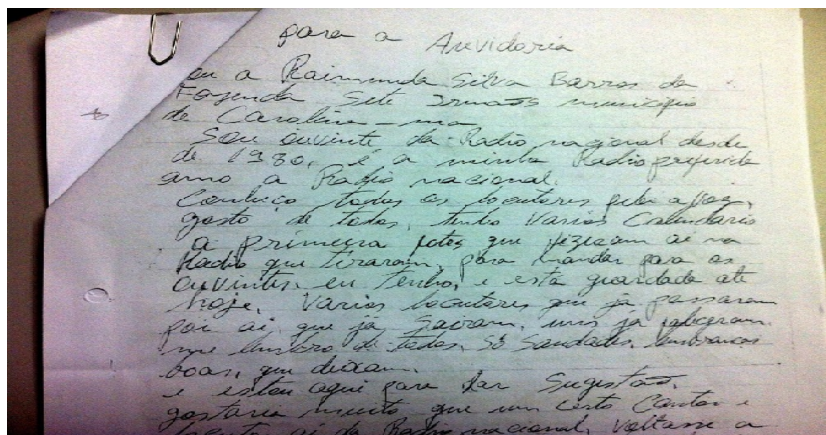 para a Auvidoria
eu a Raimunda Silva Barros da
Fazenda Sete Irmaos municipio
de Carolina - ma
Sou ouvinte da Radio nacional desde
de 1980, é a minha Radio preferida
amo a Radio nacional.
Conheço todos os locutores pela voz,
gosto de todos, tenho varios Calendario
a primeira fotos que fizeram ai na
Radio que tiraram, para mandar para os
ouvintes eu tenho, e esta guardada até
hoje. Varios locutores que ja passaram
por ai, que ja sairam, uns ja faleceram
me lembro de todos. Só saudades, lembranças
boas, que deixam.
e estou aqui para dar Sugestão.
gostaria muito que um certo Cantor e
ai da Radio nacional, voltasse a